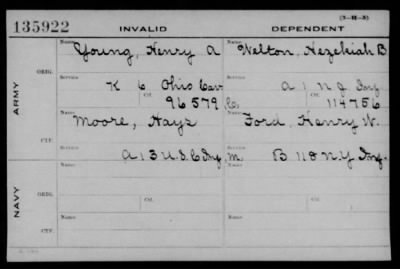 (3-M-3)
135922 INVALID DEPENDENT
Name Young, Henry A Name Welton, Hezekiah B
ORIG. ARMY
Service K 6 Ohio Cav Service A 1 N J Inf
Ctf. 96579 Co. Ctf. 114756
Name Moore, Hays Name Ford, Henry W.
CTF.
Service A 13 U.S.C Inf, M. B 118 N.Y Inf.
Name Name
NAVY
ORIG. Service Ctf. Service Ctf.
Name Name
CTF.
Service Service